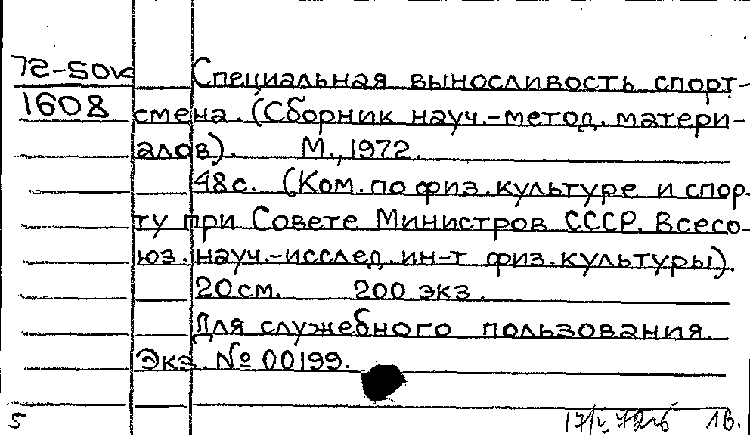 72-50к Специальная выносливость спорт-
1608 смена. (Сборник науч.-метод. матери-
алов). М., 1972.
48 с. (Ком. по физ. культуре и спор-
ту при Совете Министров СССР. Всесо-
юз. науч.-исслед. ин-т физ. культуры).
20 см. 200 экз.
Для служебного пользования.
Экз. № 00199.
5 1в.